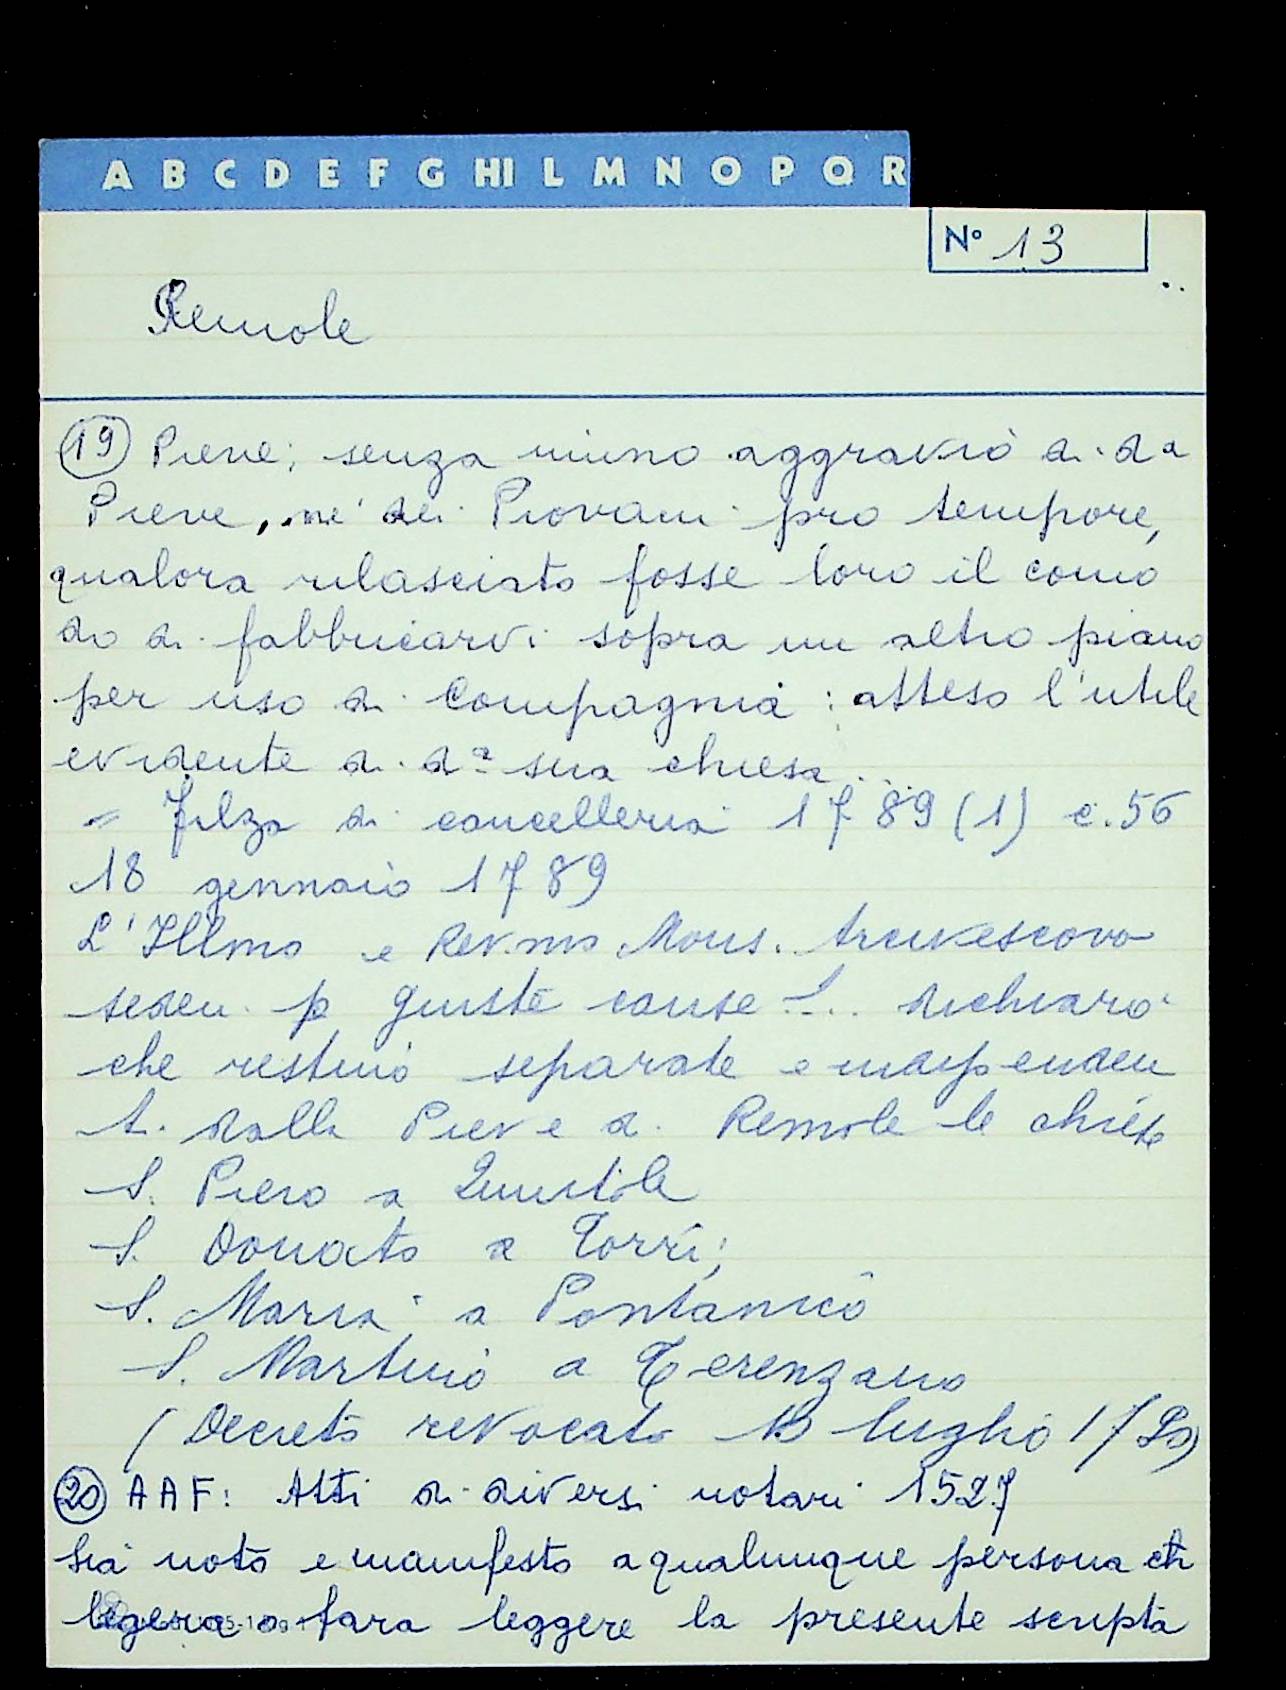 A B C D E F G HI L M N O P Q R
N° 13
Remole
19 Pieve; senza niuno aggravio di da
Pieve, ne' dei Piovani pro tempore,
qualora rilasciato fosse loro il como
do di fabbricarvi sopra un altro piano
per uso di Compagnia: atteso l'utile
evidente di dª sua chiesa..
= Filza di cancelleria 1789 (1) c. 56
18 gennaio 1789
L'Illmo e Rev.mo Mons. Arcivescovo
seden. p giuste cause ... dichiarò
che restino separate e independen
ti dalla Pieve di Remole le chiese
S. Piero a Quintole
S. Donato a Torri;
S. Maria a Pontanico
S. Martino a Terenzano
(Decreto revocato 13 luglio 1790)
20 AAF: Atti di diversi notari 1527
Sia noto e manifesto a qualunque persona ch
legera o fara leggere la presente scripta